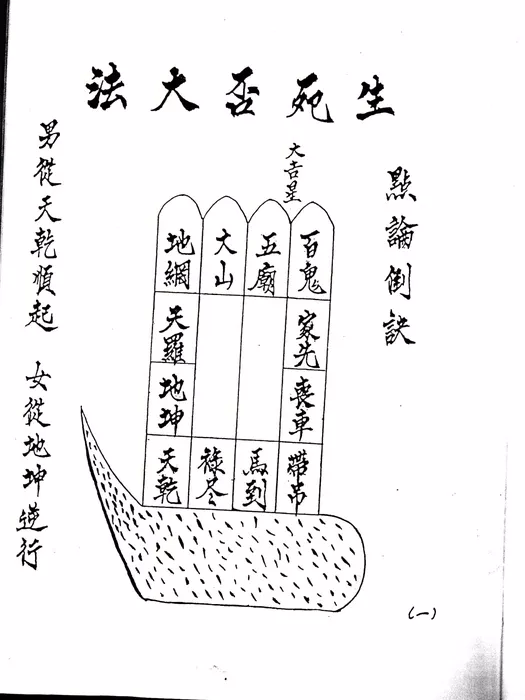 生死否大法
點論倒訣
大吉星
百鬼
五廟
大山
地網
家先
天羅
喪車
地坤
帶吊
馬到
祿尽
天乾
男從天乾順起 女從地坤逆行
(一)